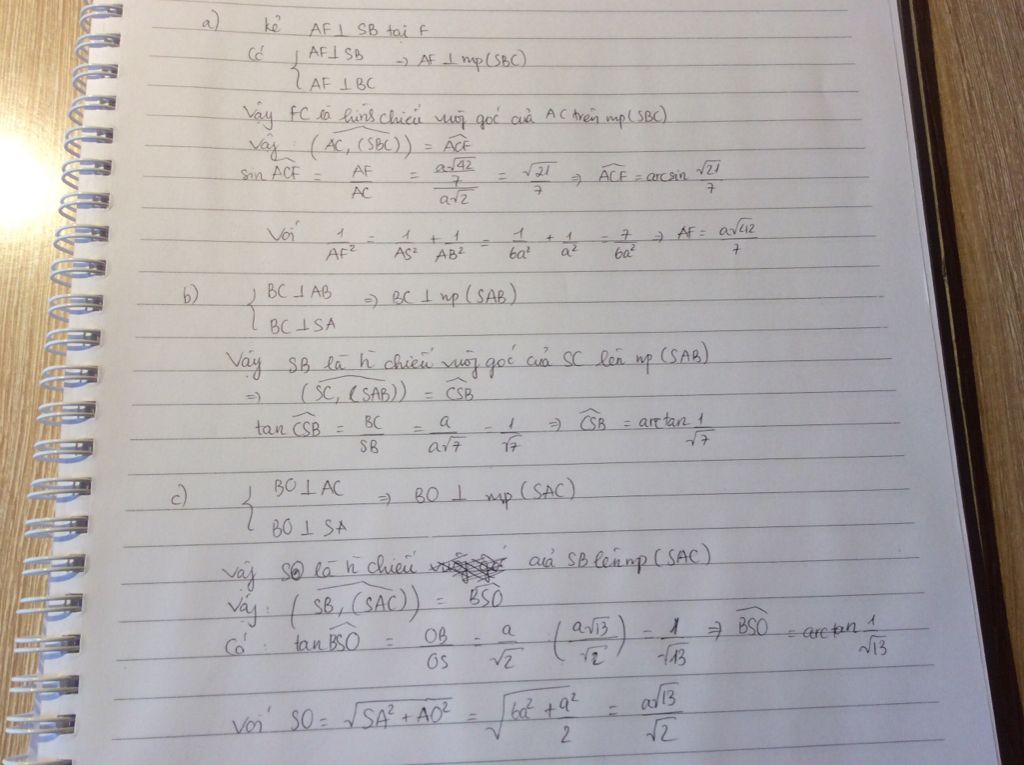 a) kẻ AF⊥ SB tại F
Có { AF⊥SB → AF ⊥ mp(SBC)
AF ⊥ BC
Vậy FC là hình chiếu vuông góc của AC trên mp(SBC)
Vậy: (AC, (SBC)) = ACF
sin ACF = AF/AC = (a√42/7)/(a√2) = √21/7 ⇒ ACF = arcsin √21/7
Với 1/AF² = 1/AS² + 1/AB² = 1/6a² + 1/a² = 7/6a² ⇒ AF = a√42/7
b) { BC ⊥ AB ⇒ BC ⊥ mp (SAB)
BC ⊥ SA
Vậy SB là h chiếu vuông góc của SC lên mp (SAB)
⇒ (SC, (SAB)) = CSB
tan CSB = BC/SB = a/a√7 = 1/√7 ⇒ CSB = arctan 1/√7
c) { BO ⊥ AC ⇒ BO ⊥ mp (SAC)
BO ⊥ SA
Vậy SO là h chiếu của SB lên mp (SAC)
Vậy: (SB, (SAC)) = BSO
Có: tan BSO = OB/OS = a/√2 : (a√13/√2) = 1/√13 ⇒ BSO = arctan 1/√13
Với SO = √(SA² + AO²) = √(6a² + a²/2) = a√13/√2